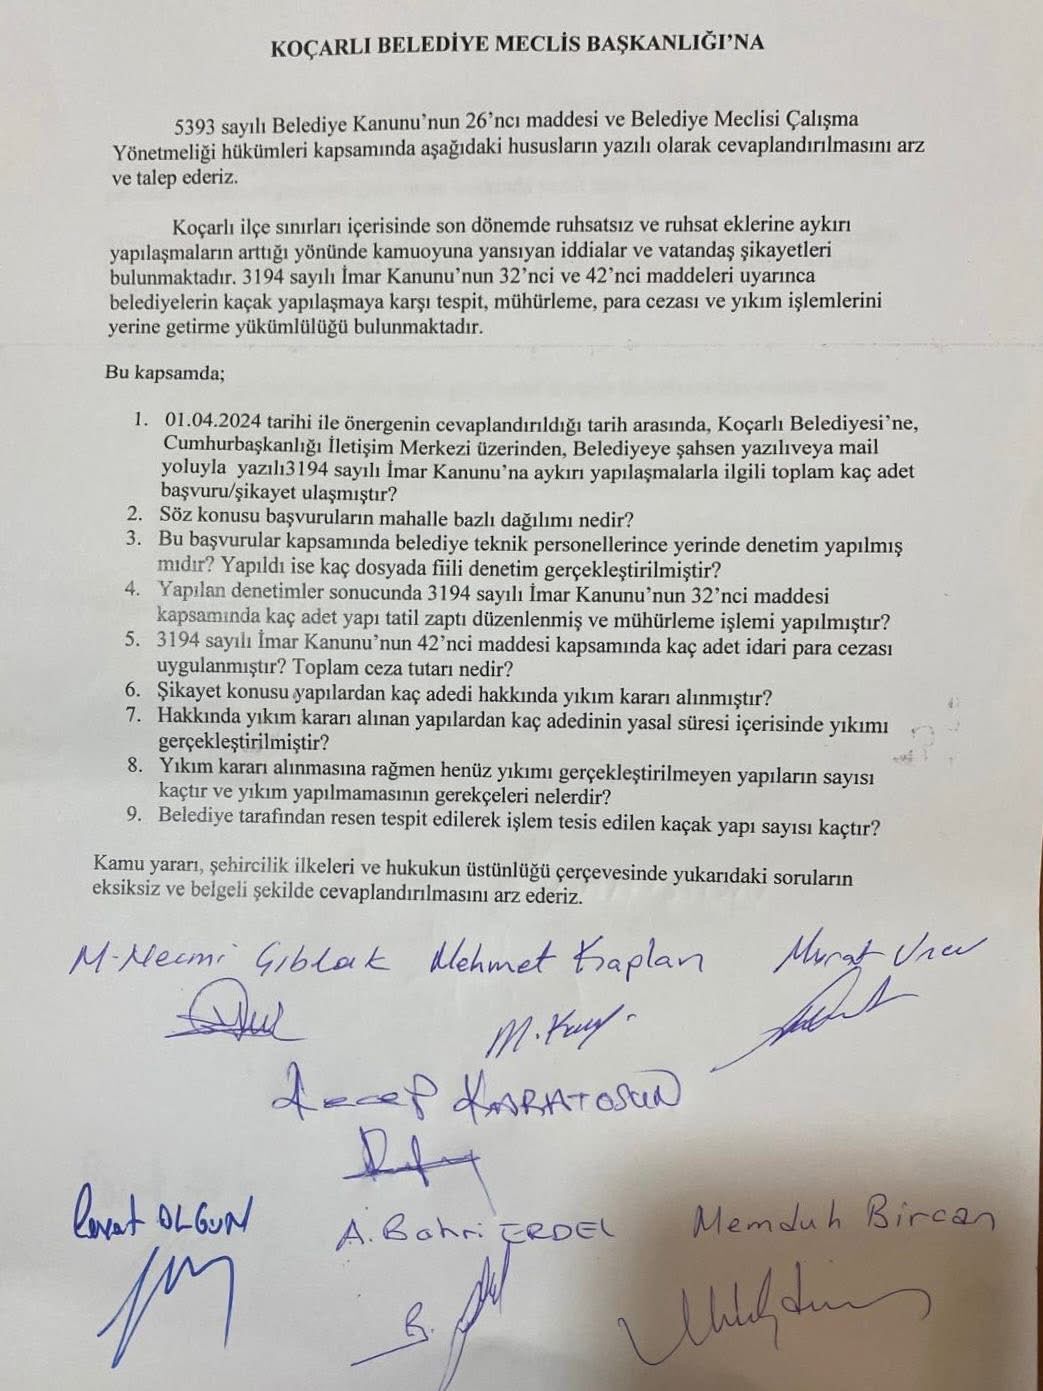 KOÇARLI BELEDİYE MECLİS BAŞKANLIĞI’NA
5393 sayılı Belediye Kanunu’nun 26’ncı maddesi ve Belediye Meclisi Çalışma
Yönetmeliği hükümleri kapsamında aşağıdaki hususların yazılı olarak cevaplandırılmasını arz
ve talep ederiz.
Koçarlı ilçe sınırları içerisinde son dönemde ruhsatsız ve ruhsat eklerine aykırı
yapılaşmaların arttığı yönünde kamuoyuna yansıyan iddialar ve vatandaş şikayetleri
bulunmaktadır. 3194 sayılı İmar Kanunu’nun 32’nci ve 42’nci maddeleri uyarınca
belediyelerin kaçak yapılaşmaya karşı tespit, mühürleme, para cezası ve yıkım işlemlerini
yerine getirme yükümlülüğü bulunmaktadır.
Bu kapsamda;
1. 01.04.2024 tarihi ile önergenin cevaplandırıldığı tarih arasında, Koçarlı Belediyesi’ne,
Cumhurbaşkanlığı İletişim Merkezi üzerinden, Belediyeye şahsen yazılıveya mail
yoluyla yazılı3194 sayılı İmar Kanunu’na aykırı yapılaşmalarla ilgili toplam kaç adet
başvuru/şikayet ulaşmıştır?
2. Söz konusu başvuruların mahalle bazlı dağılımı nedir?
3. Bu başvurular kapsamında belediye teknik personellerince yerinde denetim yapılmış
mıdır? Yapıldı ise kaç dosyada fiili denetim gerçekleştirilmiştir?
4. Yapılan denetimler sonucunda 3194 sayılı İmar Kanunu’nun 32’nci maddesi
kapsamında kaç adet yapı tatil zaptı düzenlenmiş ve mühürleme işlemi yapılmıştır?
5. 3194 sayılı İmar Kanunu’nun 42’nci maddesi kapsamında kaç adet idari para cezası
uygulanmıştır? Toplam ceza tutarı nedir?
6. Şikayet konusu yapılardan kaç adedi hakkında yıkım kararı alınmıştır?
7. Hakkında yıkım kararı alınan yapılardan kaç adedinin yasal süresi içerisinde yıkımı
gerçekleştirilmiştir?
8. Yıkım kararı alınmasına rağmen henüz yıkımı gerçekleştirilmeyen yapıların sayısı
kaçtır ve yıkım yapılmamasının gerekçeleri nelerdir?
9. Belediye tarafından resen tespit edilerek işlem tesis edilen kaçak yapı sayısı kaçtır?
Kamu yararı, şehircilik ilkeleri ve hukukun üstünlüğü çerçevesinde yukarıdaki soruların
eksiksiz ve belgeli şekilde cevaplandırılmasını arz ederiz.
M. Necmi Gıblak Mehmet Kaplan Murat
Recep KARATOSUN
OLGUN A. Bahri ERDEL Memduh Bircan